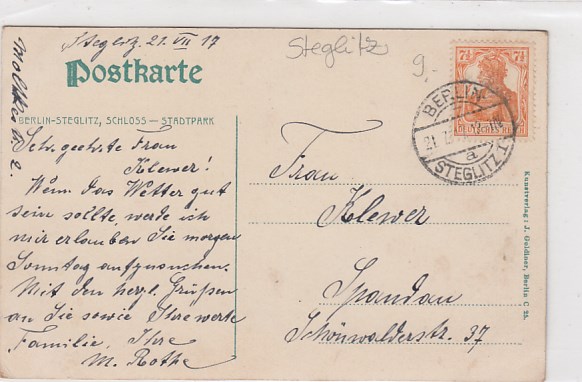 Steglitz 21. VII 17
Steglitz
9,-
Postkarte
BERLIN-STEGLITZ, SCHLOSS — STADTPARK
Sehr geehrte Frau
Klewer!
Wenn das Wetter gut
sein sollte werde ich
mir erlauben Sie morgen
Sonntag aufzusuchen.
Mit den herzl. Grüßen
an Sie sowie Ihre werte
Familie, Ihre
M. Rothe
7½ 7½
DEUTSCHES REICH
BERLIN-
21. 7.
a
STEGLITZ 1
Frau
Klewer
Spandau
Schönwalderstr. 37
Kunstverlag: J. Goldiner, Berlin C 25.